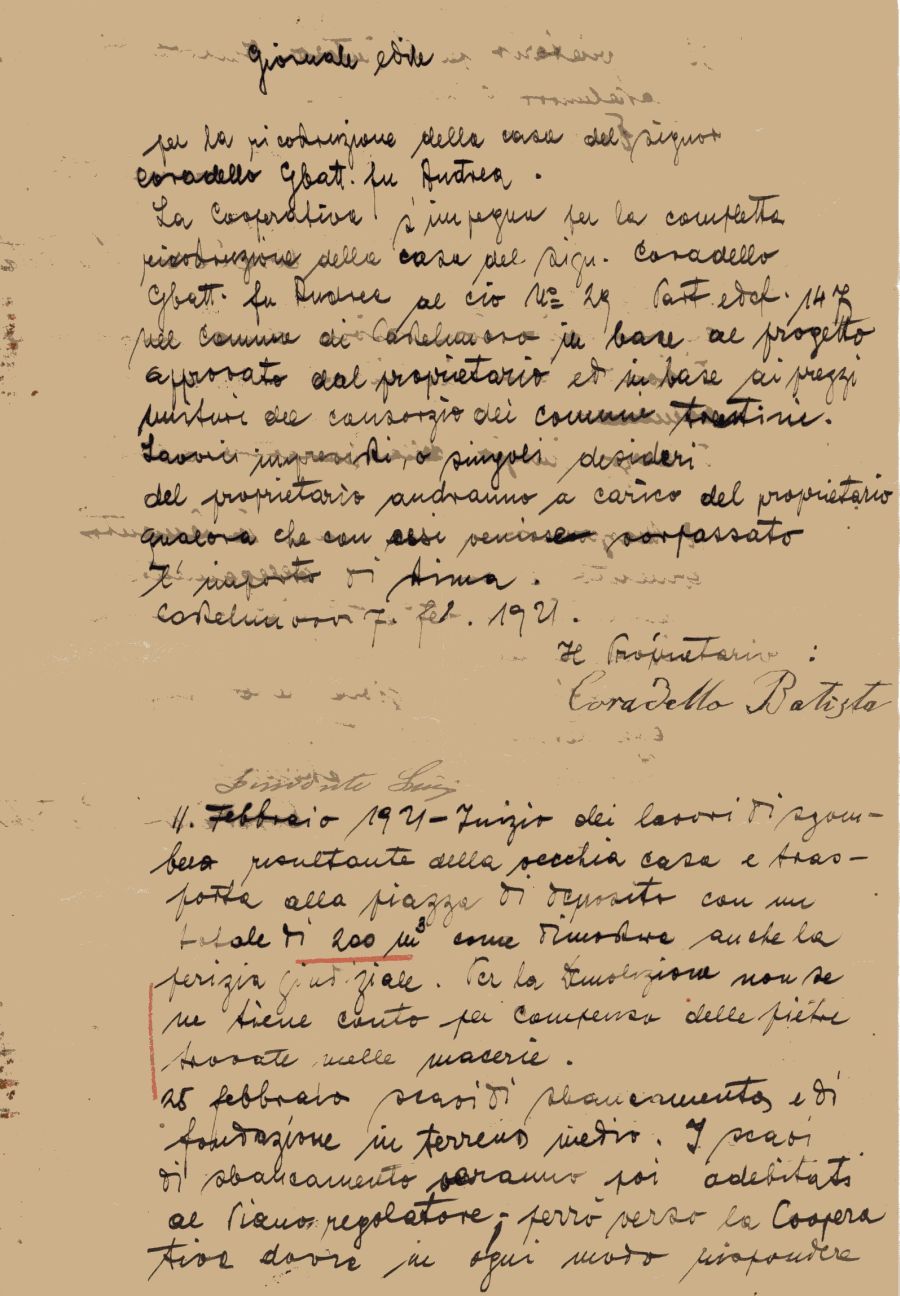 Giornale edile
per la ricostruzione della casa del signor
Coradello Gbatt. fu Andrea.
La Cooperativa s'impegna per la completta
ricostruzione della casa del sign. Coradello
Gbatt. fu Andrea al cio No 29 Part edif. 147
nel Comune di Castelnuovo in base al progetto
approvato dal proprietario ed in base ai prezzi
unituri del consorzio dei Comuni trentini.
Lavori imprevisti o singoli desideri
del proprietario andranno a carico del proprietario
qualora che con essi venisse sorpassato
l'importo di stima.
Castelnuovo 7. feb. 1921.
Il Proprietario :
Coradello Batista
Luigi
11. Febbraio 1921 - Inizio dei lavori di sgom-
bero resultante della vecchia casa e tras-
porta alla piazza di deposito con un
totale di 200 m3 come dimostra anche la
perizia giudiziale. Per la Demolizione non se
ne tiene conto per compenso delle pietre
trovate nelle macerie.
25 febbraio scavi di sbancamento e di
fondazione in terreno medio. I scavi
di sbancamento veranno poi adebitati
al Piano regolatore; perrò verso la Coopera
tiva dovra in ogni modo rispondere